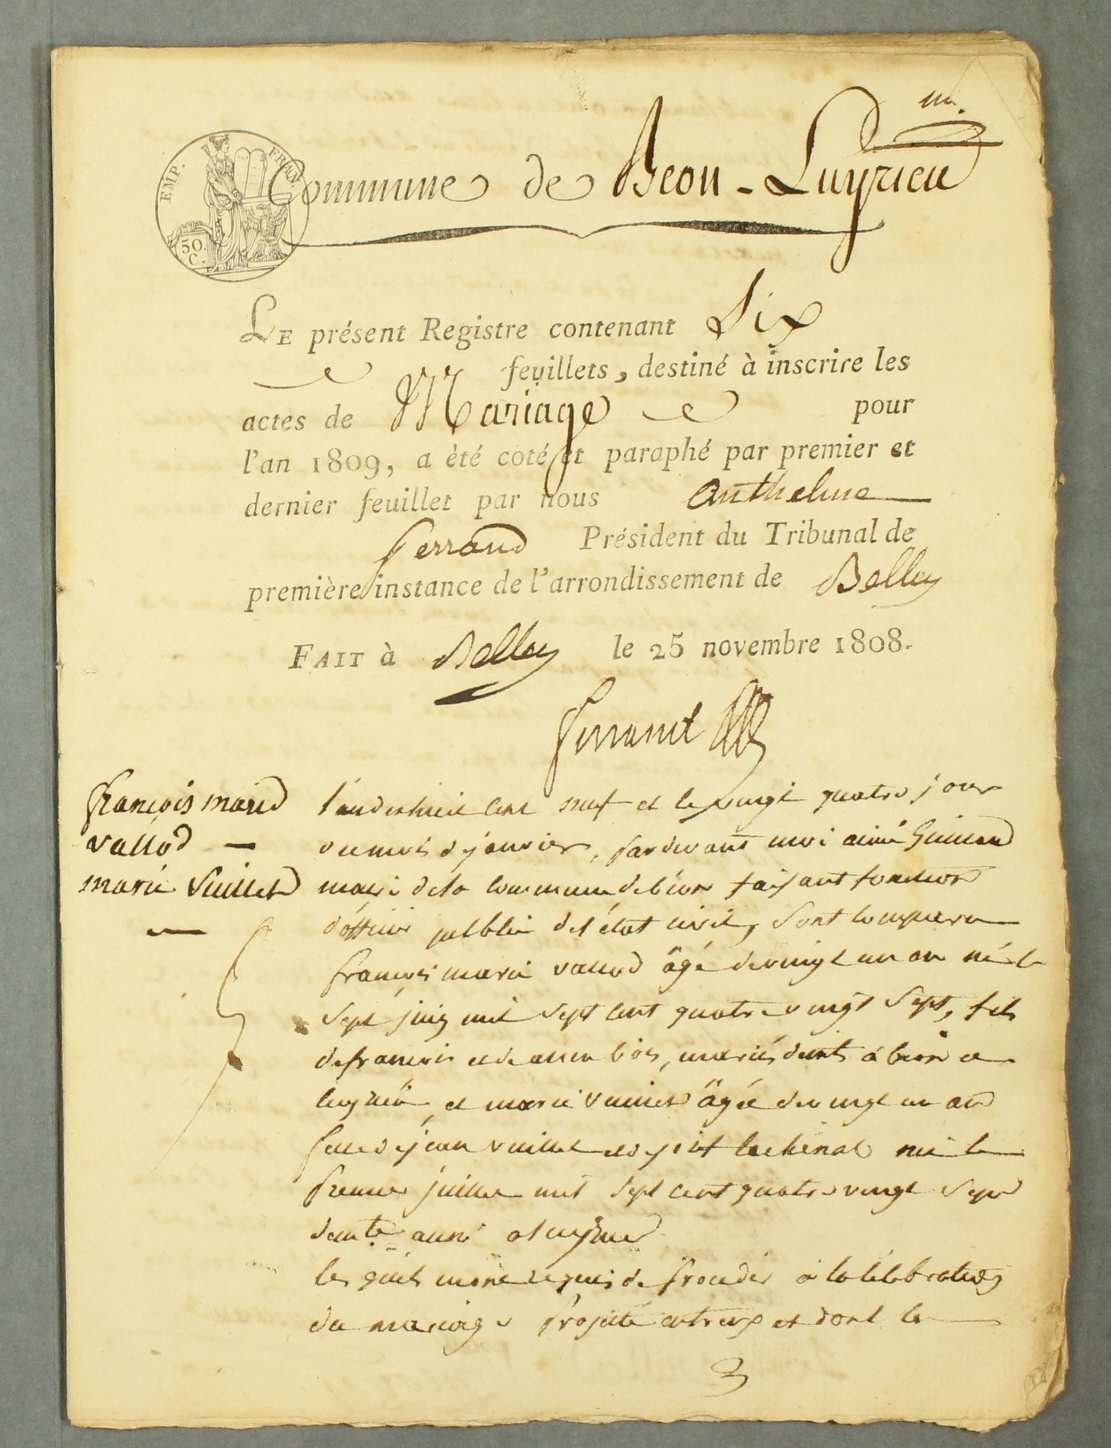 EMP. FRAN.
50. C.
Commune de Beon - Luyrieu
LE présent Registre contenant Six
feuillets, destiné à inscrire les
actes de Mariage pour
l'an 1809, a été coté et paraphé par premier et
dernier feuillet par nous anthelme
ferrand Président du Tribunal de
première instance de l'arrondissement de Belley
FAIT à Belley le 25 novembre 1808.
ferrand
françois marie
vallod
marie Vuillet
l'an dixhuit cent neuf et le vingt quatre jour
du mois de janvier, pardevant moi aimé
maire de la commune de béon faisant fonction
d'officier public de l'état civil, sont comparu
françois marie vallod âgé de vingt un an né le
sept juin mil sept cent quatre vingt sept, fils
de françois et de, à béon et
luyrieu, et marie vuillet âgée de vingt un an
fille de jean vuillet et de née le
premier juillet mil sept cent quatre vingt sept
aussi a luyrieu
les quels mont requis de proceder a la célébration
du mariage projetté entreux et dont la